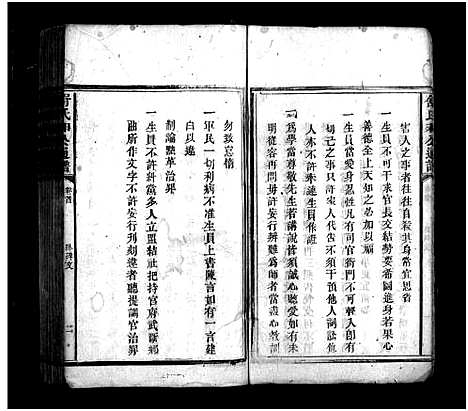 害人之事者往往自殺其身常宜思省
一生員不可干求官長交結勢要希圖進身若果心
善德全上天知之必加以福
一生員當愛身忍性凡有司官衙門不可輕入即有
切己之事止許家人代告不許干預他人詞訟他
人亦不許牽連生員作證
一為學當尊敬先生若講說皆須誠心聽受如有未
明從容再問毋妄行辨難為師者當盡心教訓
勿致怠惰
一軍民一切利病不准生員上書陳言如有一言建
白以違
制論黜革治罪
一生員不許糾黨多人立盟結社把持官府武斷鄉
曲所作文字不許妄行刊刻違者聽提調官治罪
舒氏
公通譜
卷首